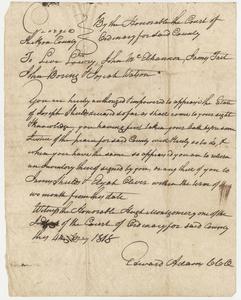 Georgia
Jackson County
By the Honorable the Court of
Ordinary for said County
To Levi Lowry, John McElhannon, James Tait
John Boring & Josiah Watson
You are hereby authorized & impowered to appraise the Estate
of Joseph Shields deceased so far as shall come to your sight
& knowledge you having first taken your oath before some
Justice of the peace for said County well & truly so to do, &
when you have the same so appraised you are to return
an Inventory thereof signed by you or any three of you to
James Shields & Elijah Oliver within the term of
two months from this date
Witness the Honorable Hugh Montgomery one of the
Judges of the Court of Ordinary for said County
this 4 day 1818
Edward Adams C.C.O.